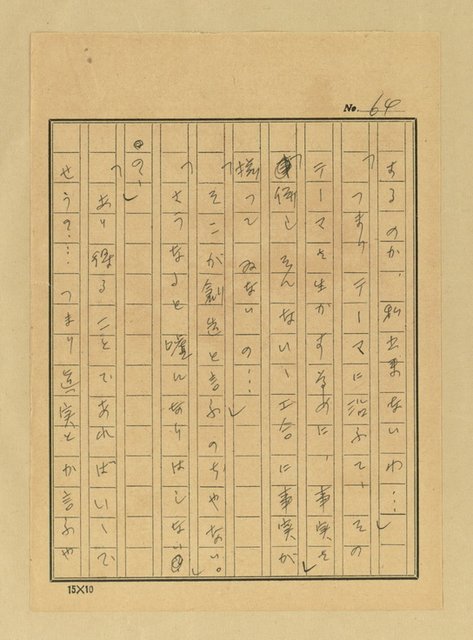 No. 64
するのか、私出来ないわ…」
「つまりテーマに沿ふて、その
テーマを生かす為めに、事実を
併しそんないゝ工合に事実が
揃つてゐないの…」
「そこが創造と言ふのぢやない。」
「さうなると嘘になりはしない
の、」
「あり得ることであればいゝで
せうの…つまり真実とか言ふや
15×10